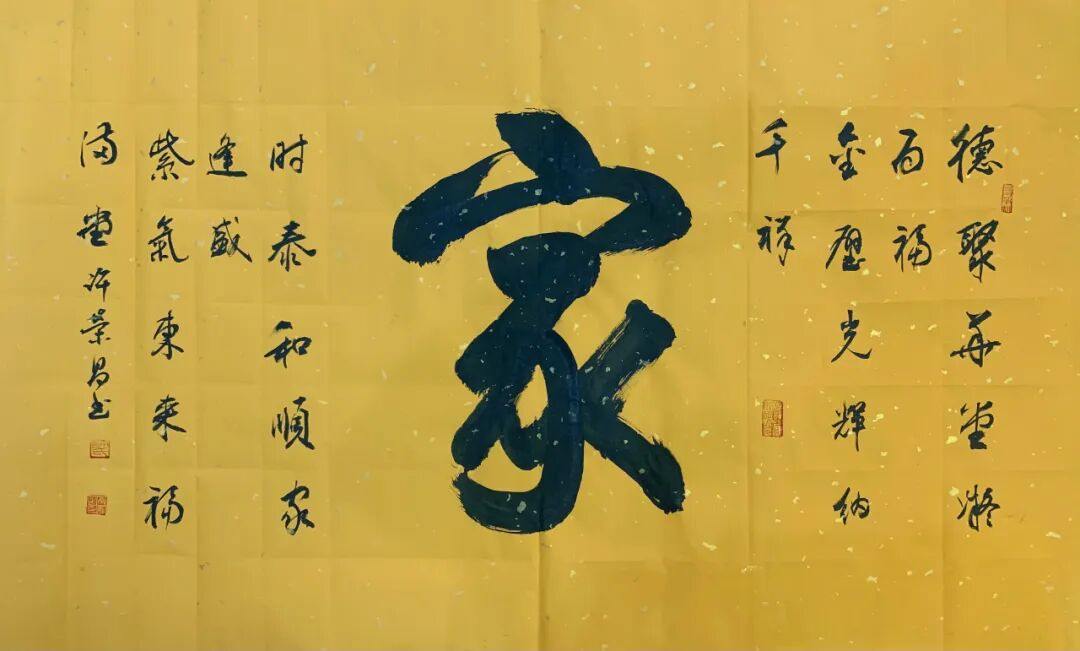 德聚华堂凝
百福
金壁光輝纳
千祥
家
时泰和順家
逢盛
紫氣東来福
满堂 许荣昌书